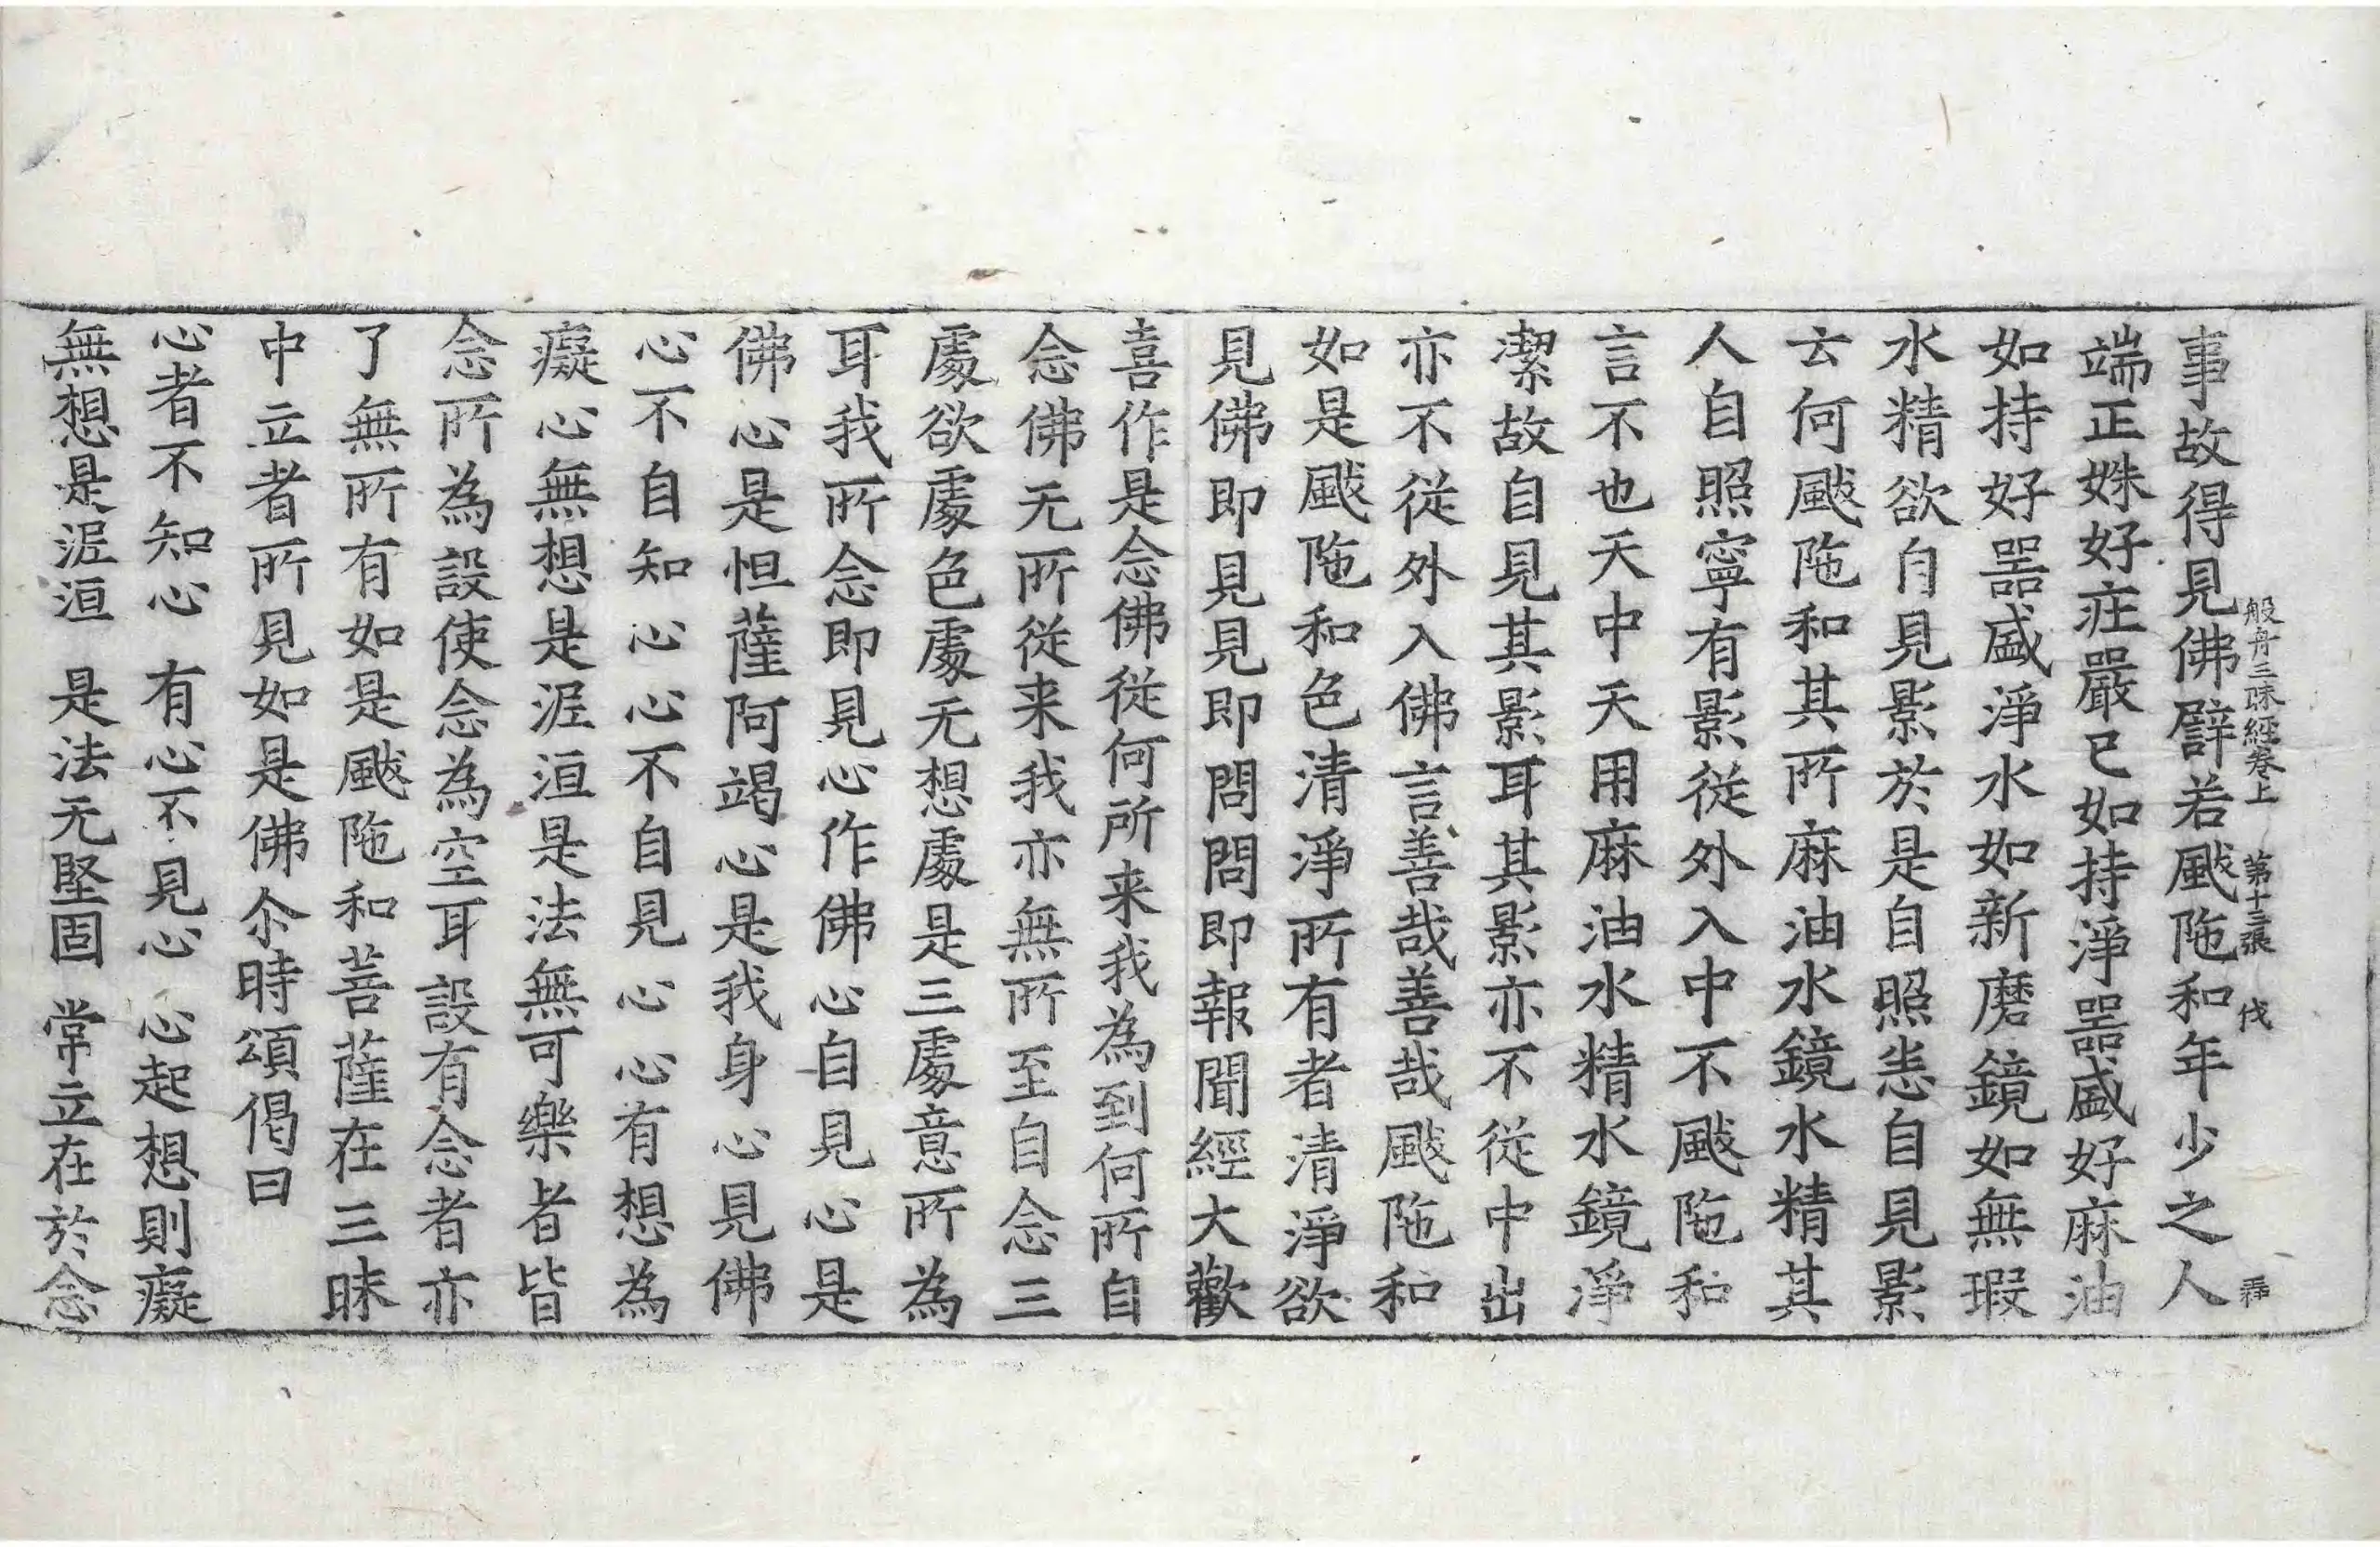 般舟三昧經卷上 第十三張 伐
事故得見佛譬若颰陁和年少之人
端正姝好莊嚴已如持淨器盛好麻油
如持好器盛淨水如新磨鏡如無瑕
水精欲自見影於是自照悉自見影
云何颰陁和其所麻油水鏡水精其
人自照寧有影從外入中不颰陁和
言不也天中天用麻油水精水鏡淨
潔故自見其影耳其影亦不從中出
亦不從外入佛言善哉善哉颰陁和
如是颰陁和色清淨所有者清淨欲
見佛即見見即問問即報聞經大歡
喜作是念佛從何所来我為到何所自
念佛无所從来我亦無所至自念三
處欲處色處无想處是三處意所為
耳我所念即見心作佛心自見心是
佛心是怛薩阿竭心是我身心見佛
心不自知心心不自見心心有想為
癡心無想是泥洹是法無可樂者皆
念所為設使念為空耳設有念者亦
了無所有如是颰陁和菩薩在三昧
中立者所見如是佛尒時頌偈曰
心者不知心 有心不見心 心起想則癡
無想是泥洹 是法无堅固 常立在於念